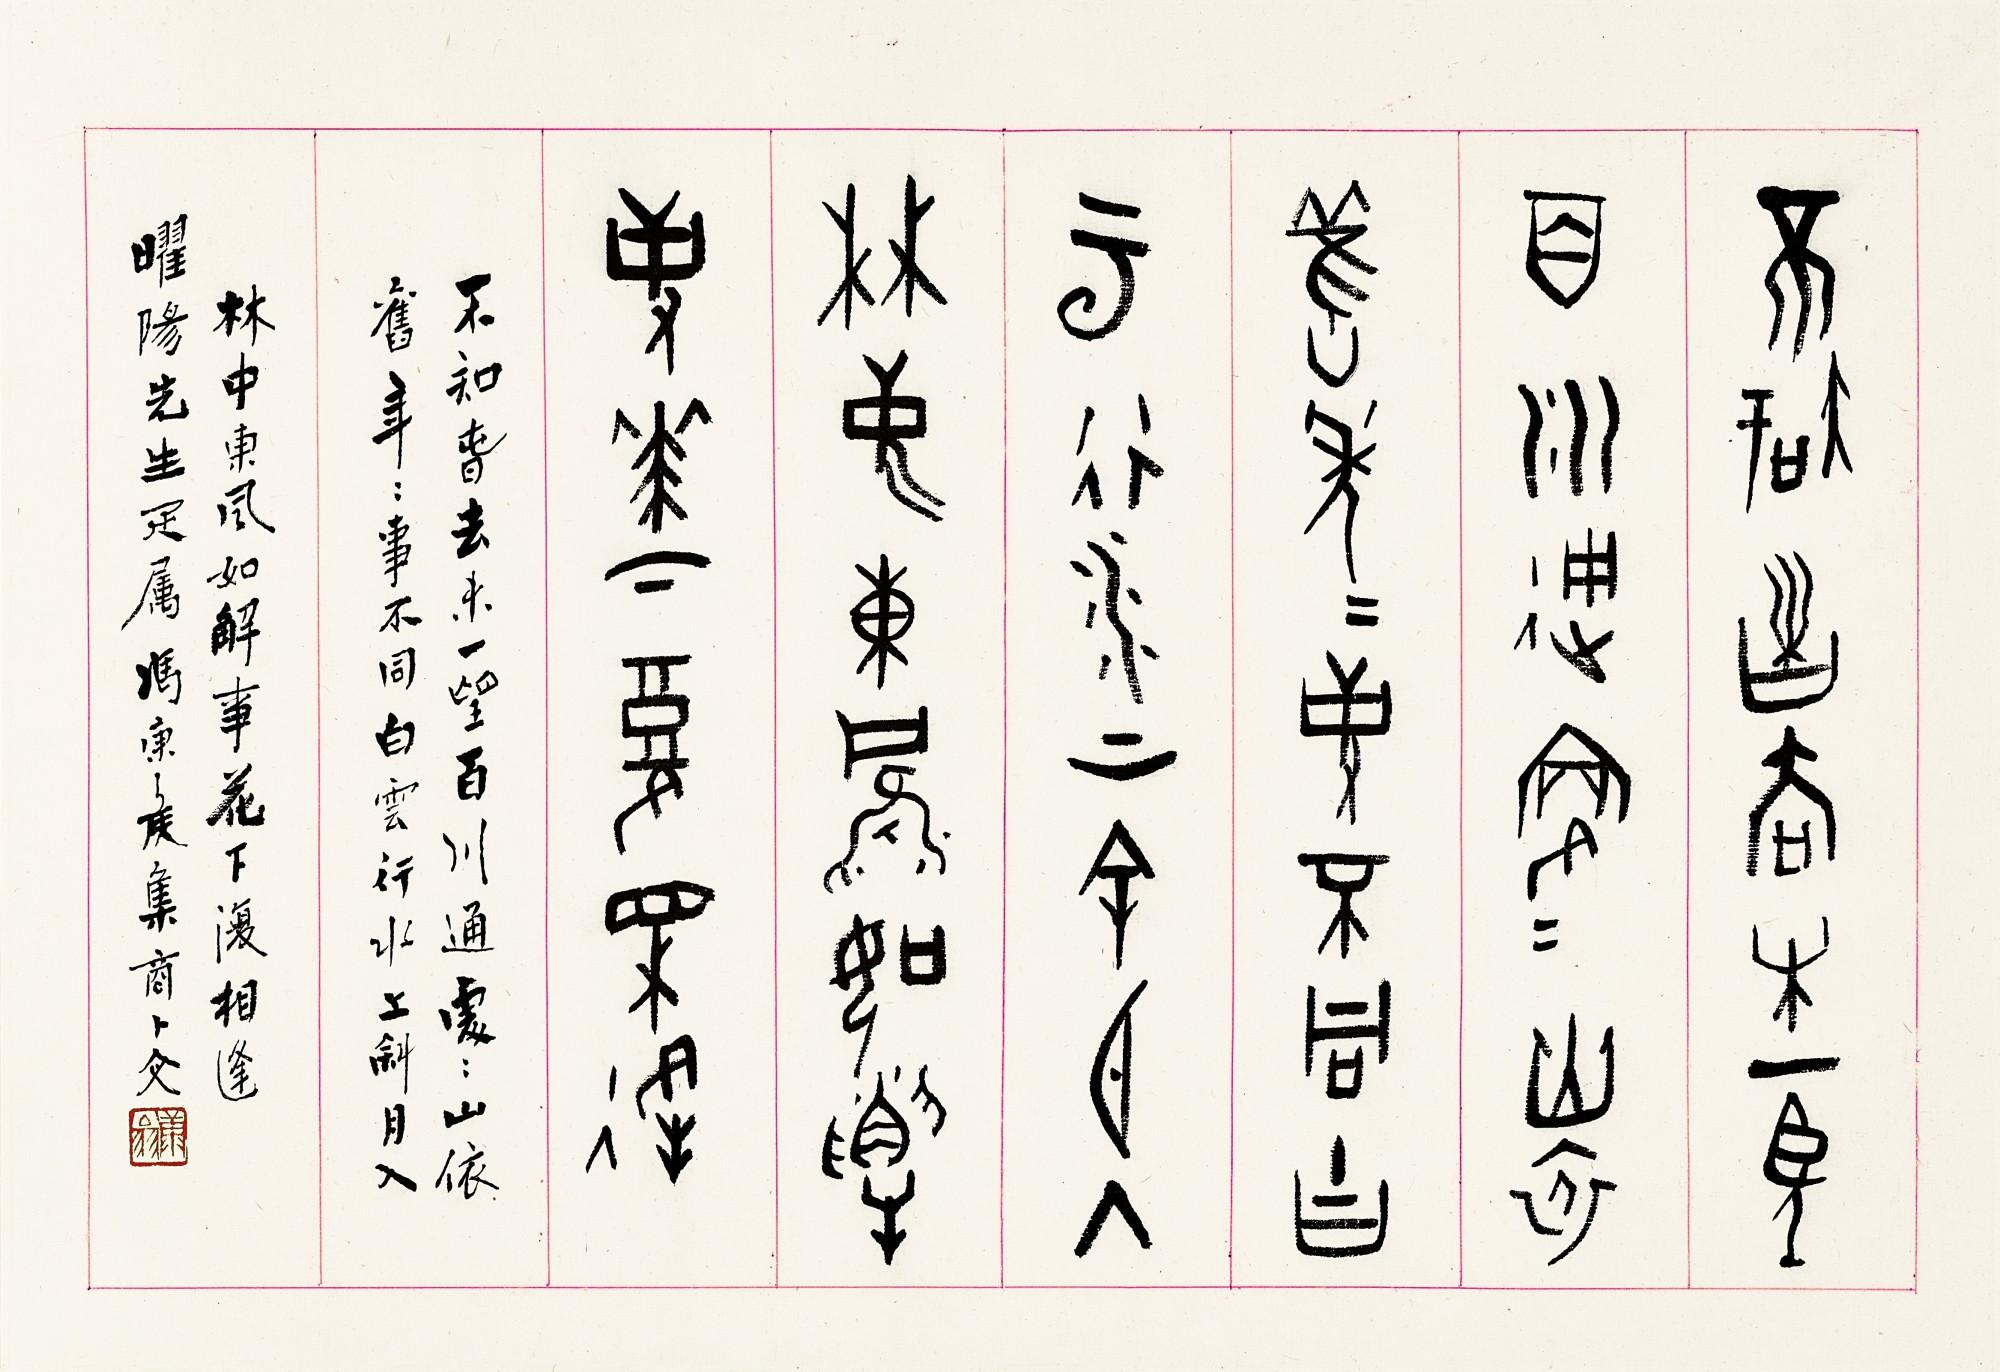 不知春去來一望
百川通處〻山依
舊年〻事不同白
雲行水上斜月入
林中東風如解
事花下復相逢
不知春去來一望百川通處〻山依
舊年〻事不同白雲行水上斜月入
林中東風如解事花下復相逢
曜陽先生疋属 馮康矦集商卜文